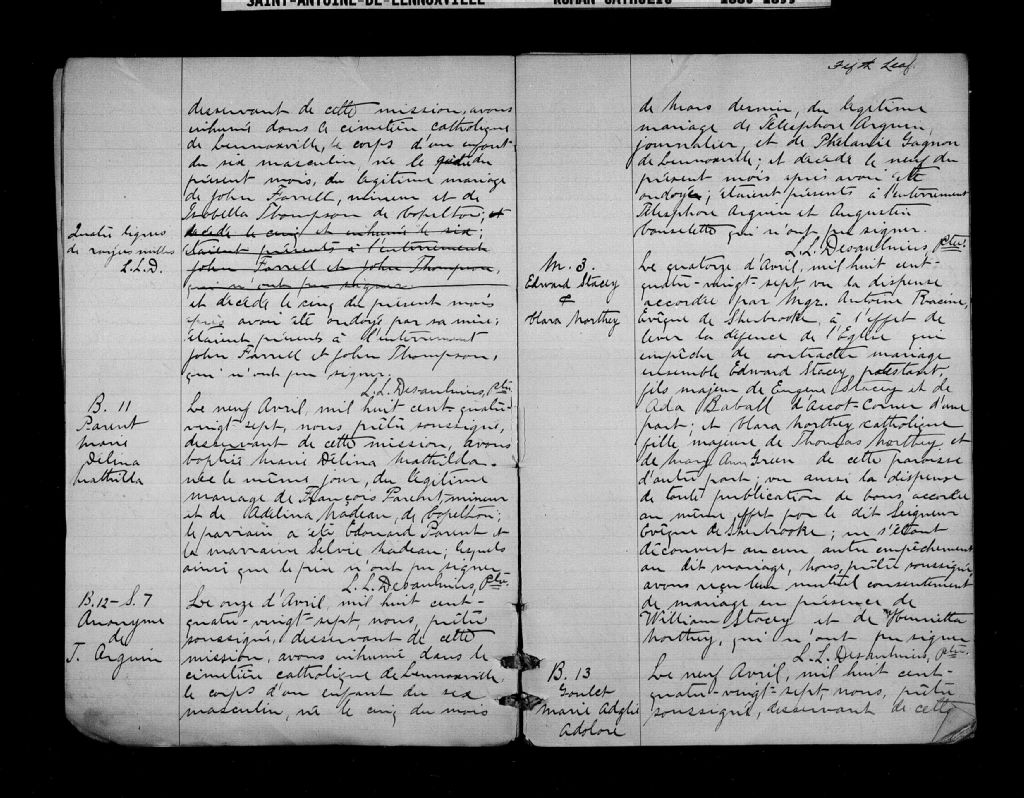 SAINT-ANTOINE-DE-LENNOXVILLE ROMAN CATHOLIC 1886-1899
desservant de cette mission, avons
inhumé dans le cimetière catholique
de Lennoxville, le corps d'un enfant
du sexe masculin, né le du
présent mois, du légitime mariage
de John Farrell, mineur et de
Isabella Thompson de Capelton; et
décédé le cinq et inhumé le six;
étaient présents à l'enterrement
John Farrell et John Thompson,
qui n'ont pu signer.
et décédé le cinq du présent mois
après avoir été ondoyé par sa mère;
étaient présents à l'enterrement
John Farrell et John Thompson,
qui n'ont pu signer.
L. L. Desaulniers, Ptre
Quatre lignes
de rayées nulles
L.L.D.
B. 11
Parent
Marie
Délina
Mathilda
Le neuf Avril, mil huit cent-quatre-
vingt-sept, nous prêtre soussigné,
desservant de cette mission, avons
baptisé Marie Délina Mathilda-
née le même jour, du légitime
mariage de François Parent, mineur
et de Adelina Nadeau, de Capelton;
le parrain a été Edouard Parent et
la marraine Silvie Nadeau; lequels
ainsi que le père n'ont pu signer.
L. L. Desaulniers, Ptre
B. 12 - S. 7
Anonyme
de
T. Arguin
Le onze d'Avril, mil huit cent-
quatre-vingt-sept, nous, prêtre
soussigné, desservant de cette
mission, avons inhumé dans le
cimetière catholique de Lennoxville
le corps d'un enfant du sexe
masculin, né le cinq du mois
Fifth Leaf.
de Mars dernier, du légitime
mariage de Télesphore Arguin,
journalier, et de Phélanie Gagnon
de Lennoxville; et décédé le neuf du
présent mois après avoir été
ondoyé; étaient présents à l'enterrement
Télesphore Arguin et Augustin
qui n'ont pu signer.
L. L. Desaulniers, Ptre
M. 3.
Edward Stacey
&
Clara Northey
Le quatorze d'Avril, mil huit cent-
quatre-vingt-sept vu la dispense
accordée par Mgr. Antoine Racine,
Evêque de Sherbrooke, à l'effet de
lever la défence de l'Eglise qui
empêche de contracter mariage
ensemble Edward Stacey protestant,
fils majeur de Eugene Stacey et de
Ada Baball d'Ascot-Corner d'une
part; et Clara Northey catholique
fille majeure de Thomas Northey et
de Mary Ann Green de cette paroisse
d'autre part; vu aussi la dispense
de toute publication de bans, accordée
au même effet par le dit Seigneur
Evêque de Sherbrooke; ne s'étant
découvert aucun autre empêchement
au dit mariage, Nous, prêtre soussigné
avons reçu leur mutuel consentement
de mariage en présence de
William Stacey et de Henrietta
Northey, qui n'ont pu signer
L. L. Desaulniers, Ptre
B. 13
Goulet
Marie Adglie
Adolore
Le neuf Avril, mil huit cent-
quatre-vingt-sept-nous, prêtre
soussigné, desservant de cette